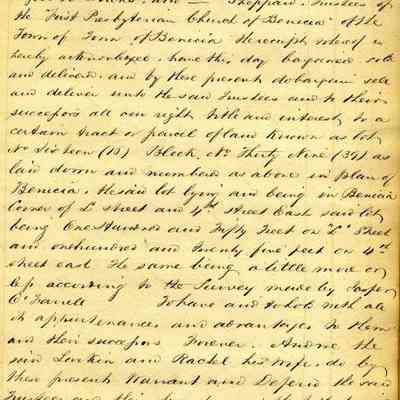 Sheppard, Trustees of
the "First Presbyterian Church of Benicia" of the
Town of Benicia the receipt whereof is
hereby acknowledged, have this day bargained sold
and delivered, and by these presents do bargain sell
and deliver unto the said Trustees and to their
successors all our right title and interest to a
certain tract or parcel of land known as lot
No Sixteen (16) Block, No Thirty Nine (39) as
laid down and numbered as above in plan of
Benicia, the said lot lying and being in Benicia
Corner of L street and 4th street East said lot
being One Hundred and Fifty Feet on "L" Street
and one hundred and Twenty five feet on 4th
street east. The same being a little more or
less according to the Survey made by Jasper
O'Farrell To have and to hold with all
its appurtenances and advantages to them
and their successors Forever. And we the
said Larkin and Rachel his wife, do by
these presents Warrant and Defend the said
Trustees and their